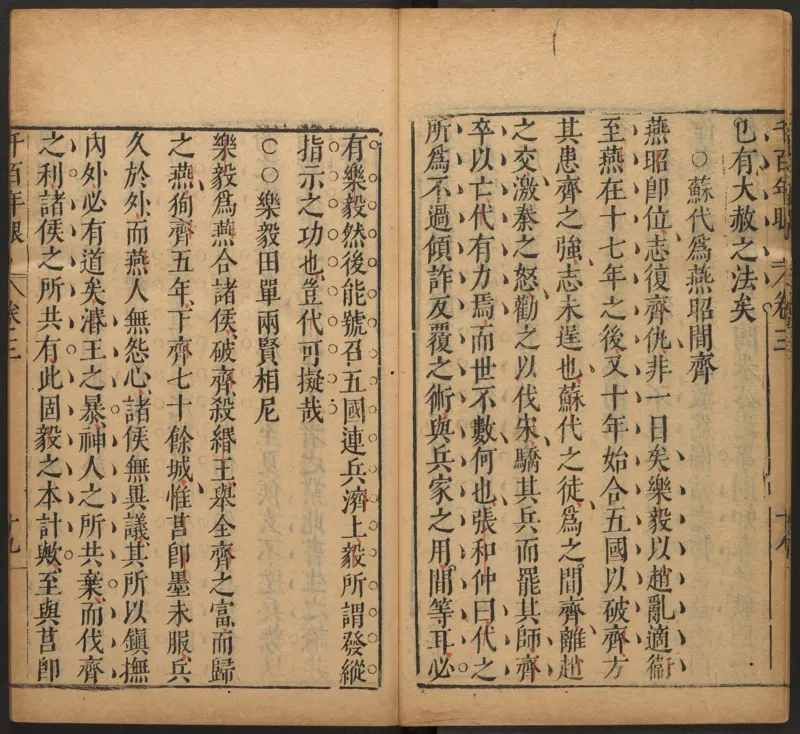 千百年眼 卷三 十八
也有大赦之法矣
○蘇代爲燕昭間齊
燕昭卽位志復齊仇非一日矣樂毅以趙亂適衞
至燕在十七年之後又十年始合五國以破齊方
其患齊之強志未逞也蘇代之徒爲之間齊離趙
之交激秦之怒勸之以伐宋驕其兵而罷其師齊
卒以亡代有力焉而世不數何也張和仲曰代之
所爲不過傾詐反覆之術與兵家之用間等耳必
有樂毅然後能號召五國連兵濟上毅所謂發縱
指示之功也豈代可擬哉
○○樂毅田單兩賢相尼
樂毅爲燕合諸侯破齊殺緡王舉全齊之富而歸
之燕狥齊五年下齊七十餘城惟莒卽墨未服兵
久於外而燕人無怨心諸侯無異議其所以鎭撫
內外必有道矣湣王之暴神人之所共棄而伐齊
之利諸侯之所共有此固毅之本計歟至與莒卽
千百年眼 卷三 十九